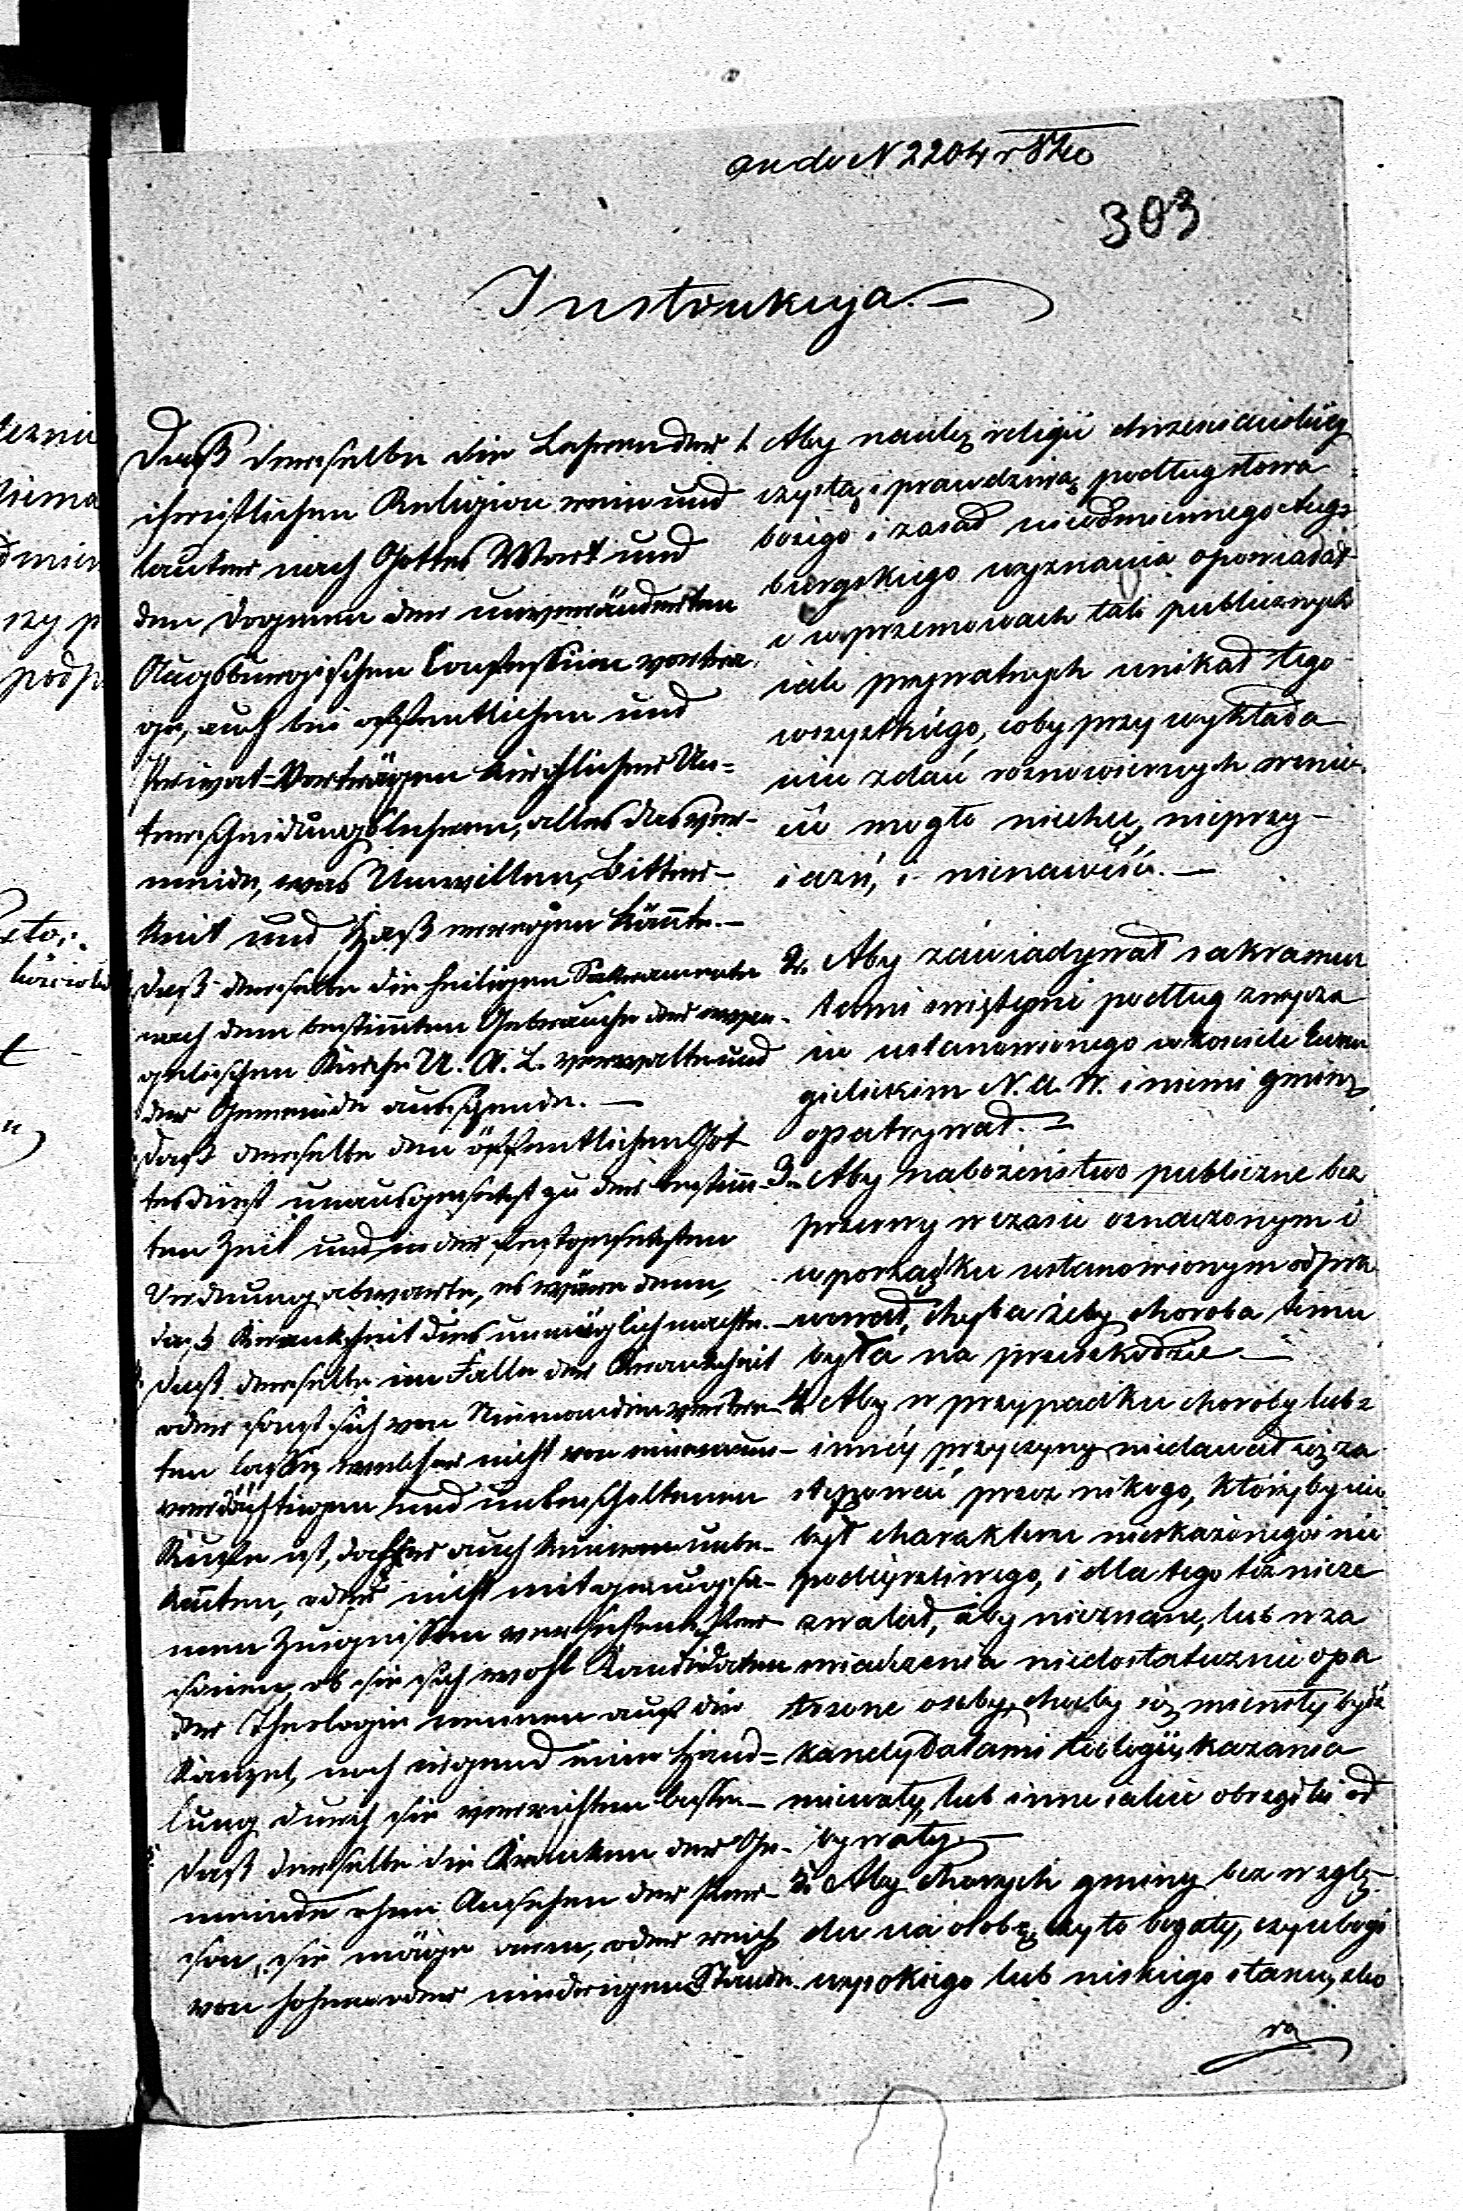 ad N 2204
303
Instrukcya.—
Daß derselbe die Lehren der
christlichen Religion rein und
lauter nach Gottes Wort und
den Dogmen der unveränderten
Augsburgischen Confession vortra
ge, auch bei öffentlichen und
Privat-Vorträgen kirchlicher Un=
terscheidungslehren, alles das ver-
meide, was Unwillen, Bitter-
keit und Haß erregen könnte.—
Daß derselbe die heiligen Sakramente
nach dem bestimten Gebrauche der evan-
gelischen Kirche U. A. C. verwalte und
der Gemeinde ausspende.—
Daß derselbe den öffentlichen Got
tesdienst unausgesetzt zu der bestimm-
ten Zeit und in der festgesetzten
Ordnung abwarte, es wäre denn,
daß Krankheit dies unmöglich machte.—
Daß derselbe im Falle der Krankheit
oder sonst sich von Niemanden vertre-
ten lasse, welcher nicht von einem un-
verdächtigen und unbescholtenen
Rufe ist, daß er auch keinem unbe-
kannten, oder nicht mit genugsa-
men Zeugnissen versehenen Per-
sonen, ob sie sich wohl Kandidaten
der Theologie nennen auf die
Kanzel, noch irgend eine Hand=
lung durch sie verrichten lasse—
Daß derselbe die Kranken der Ge-
meinde ohne Ansehen der Per-
son, sie möge arm, oder reich
von hohem oder niedrigem Stande
1. Aby naukę religii chrześciańskiej
czystą i prawdziwą podług słowa
bożego i zasad nieodmiennego Augs
burgskiego wyznania opowiadał
i w przemowach tak publicznych
iak prywatnych unikał tego
wszystkiego, coby przy wykłada
niu zdań roznowiernych wznie
cić mogło niechęć, nieprzy-
iaźń, i nienawiść.—
2. Aby zawiadywał sakramen
tami świętymi podług zwycza
iu ustanowionego w kosciele Ewan
gielickim N. A. W. i niemi gminę
opatrywał.—
3. Aby nabożeństwo publiczne bez
przerwy w czasie oznaczonym i
w porządku ustanowionym odpra
wował, chyba żeby choroba temu
była na przeszkodzie.—
4. Aby w przypadku choroby lub z
innéy przyczyny niedawał się za
stępować przez nikogo, któryby nie
był charakteru nieskażonego i nie
podeyrzliwego, i dla tego też nieze
zwalał, aby nieznane, lub w za
świadczenia niedostatecznie opa
trzone osoby, choćby się mieniły być
kandydatami teologii, kazania
miewały, lub inne iakie obrządki od
bywały.—
5. Aby chorych gminy bez wzglę
du na osobę, czy to bogaty, czy ubogi
wysokiego lub niskiego stanu, cho
rą